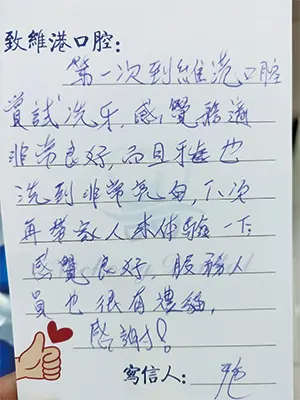 致維港口腔：
第一次到維港口腔
嘗試洗牙，感覺
非常良好，而且牙也
洗到非常亮白，下次
再帶家人來体驗一下
感覺良好，服務人
員也很有禮貌，
感謝！
寫信人：